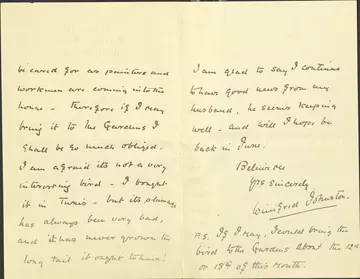 be cared for as painters and
workmen are coming into the
house - therefore if I may
bring it to the Gardens I
shall be so much obliged.
I am afraid its not a very
interesting bird - I bought
it in Tunis - but its plumage
has always been very bad,
and it has never grown the
long tail it ought to have!
I am glad to say I continue
to have good news from my
husband, he seems keeping
well - and will I hope be
back in June.
Believe me
yrs sincerely
Winifred Johnston.
P.S. If I may. I could bring the
bird to the Gardens about the 12th
or 13th of this month.